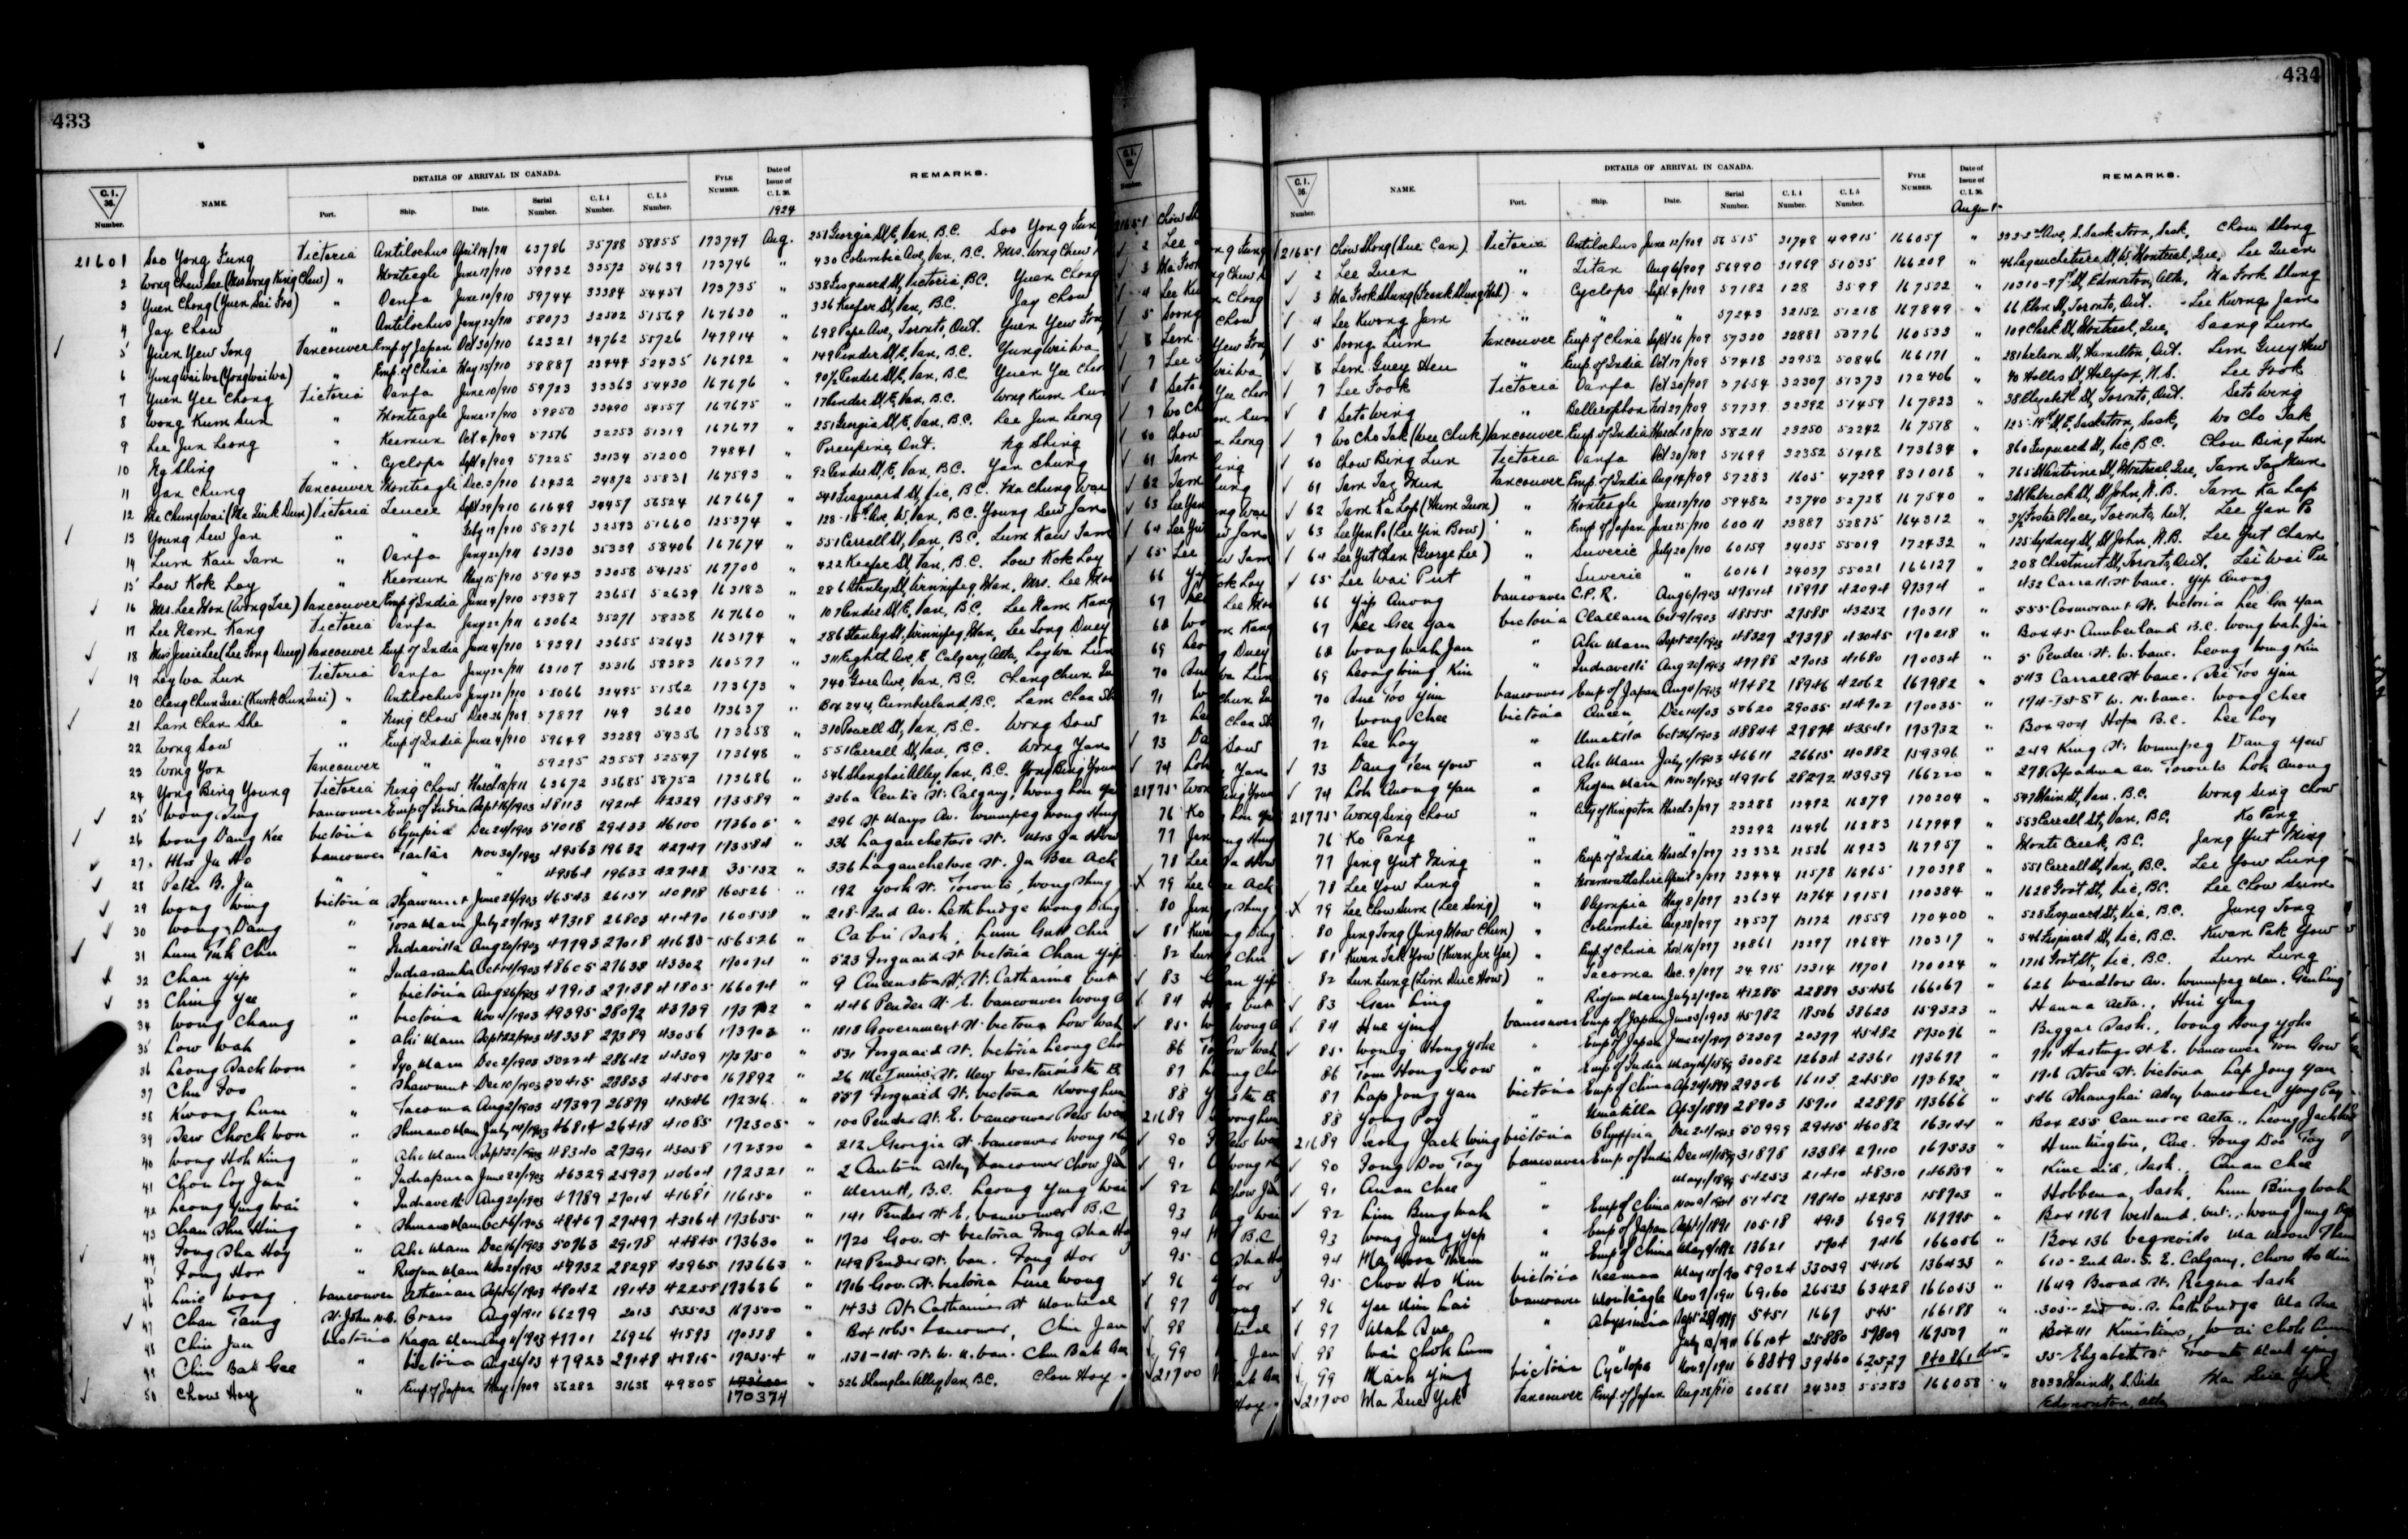 433
DETAILS OF ARRIVAL IN CANADA.
C.I. 36. Number. NAME. Port. Ship. Date. Serial Number. C.I. 4 Number. C.I. 5 Number. FYLE NUMBER. Date of Issue of C.I. 36. REMARKS.
1924
21601 Soo Yong Fung Victoria Antilochus April 14/911 63786 35788 58855 173747 Aug. 251 Georgia St, E, Van, B.C. Soo Yong Fun
2 Wong Chew Lee (Mrs Wong King Chew) " Monteagle June 17/910 59932 33572 54639 173746 " 430 Columbia Ave, Van, B.C. Mrs. Wong Chew
3 Yuen Chong (Yuen Sai Foo) " Oanfa June 10/910 59744 33384 54451 173735 " 538 Fisguard St, Victoria, B.C. Yuen Chong
4 Jay Chow " Antilochus Jany 22/910 58073 32502 51569 167630 " 336 Keefer St, Van, B.C. Jay Chow
5 Yuen Yew Tong Vancouver Emp of Japan Oct 30/910 62321 24762 55726 147914 " 698 Pape Ave, Toronto, Ont. Yuen Yew Tong
6 Yung Wai Wa (Yong Wai Wa) " Emp. of China May 15/910 58887 23444 52435 167692 " 149 Pender St, E, Van, B.C. Yung Wai Wa
7 Yuen Yee Chong Victoria Oanfa June 10/910 59723 33363 54430 167676 " 90½ Pender St, E, Van, B.C. Yuen Yee Chon
8 Wong Kum Sun " Monteagle June 17/910 59850 33490 54557 167675 " 17 Pender St, E, Van, B.C. Wong Kum Sun
9 Lee Jun Leong " Keemun Oct 4/909 57576 32253 51319 167677 " 251 Georgia St, E, Van, B.C. Lee Jun Leong
10 Ng Shing " Cyclops Sept 4/909 57225 32134 51200 74841 " Porcupine, Ont. Ng Shing
11 Yan Chung Vancouver Monteagle Dec. 3/910 62432 24872 55831 167593 " 92 Pender St, E, Van, B.C. Yan Chung
12 Ma Chung Wai (Ma Quik Dun) Victoria Luceric Sept 29/910 61649 34457 56524 167667 " 541 Fisguard St, Vic, B.C. Ma Chung Wai
13 Young Sew Jan " " Feby 19/910 58276 32593 51660 125374 " 128-15th Ave, W, Van, B.C. Young Sew Jan
14 Lum Kau Tam " Oanfa Jany 22/911 63130 35339 58406 167674 " 551 Carrall St, Van, B.C. Lum Kau Tam
15 Low Kok Loy " Keemun May 15/910 59043 33058 54125 167700 " 422 Keefer St, Van, B.C. Low Kok Loy
16 Mrs. Lee Mon (Wong Tse) Vancouver Emp. of India June 4/910 59387 23651 52639 163183 " 286 Stanley St, Winnipeg, Man, Mrs. Lee Mon
17 Lee Nam Kang Victoria Oanfa Jany 22/911 63062 35271 58338 167660 " 107 Pender St, E, Van, B.C. Lee Nam Kang
18 Miss Jessie Lee (Lee Tong Duey) Vancouver Emp. of India June 4/910 59391 23655 52643 163174 " 286 Stanley St, Winnipeg, Man, Lee Tong Duey
19 Loy Wa Lun Victoria Oanfa Jany 22/911 63107 35316 58383 160577 " 311 Eighth Ave, E. Calgary, Alta, Loy Wa Lun
20 Chang Chun Quei (Kwok Chun Quei) " Antilochus Jany 22/910 58066 32495 51562 173673 " 740 Gore Ave, Van, B.C. Chang Chun
21 Lam Chan She " Ning Chow Dec 26/909 57877 149 3620 173637 " Box 244, Cumberland, B.C. Lam Chan Sh
22 Wong Sow " Emp of India June 4/910 59649 33289 54356 173658 " 310 Powell St, Van, B.C. Wong Sow
23 Wong Yon Vancouver " " 59295 23559 52547 173648 " 551 Carrall St, Van, B.C. Wong Yon
24 Yong Bing Young Victoria Ning Chow March 18/911 63672 35685 58752 173686 " 546 Shanghai Alley, Van, B.C. Yong Bing Young
25 Wong Ting Vancouver Emp of India Sept 16/1903 48113 19214 42329 173589 " 206a Centre St. Calgary, Wong
26 Wong Dang Kee Victoria Olympia Dec 20/1903 51018 29433 46100 173605 " 296 St Marys Av. Winnipeg Wong
27 Mrs Ju Ho Vancouver Tartar Nov 30/1903 49563 19632 42747 173584 " 336 Lagauchetiere St. Mrs Ju How
28 Peter B. Ju " " " 49564 19633 42748 35132 " 336 Lagauchetiere St. Ju Bee Ack
29 Wong Wing Victoria Shawmut June 26/1903 46543 26157 40818 160526 " 192 York St. Toronto, Wong
30 Wong Dang " Tosa Maru July 27/1903 47318 26803 41470 160558 " 218-2nd Av. Lethbridge Wong Dang
31 Lum Tuk Chu " Indravelli Aug 20/1903 47793 27018 41685 156526 " Cabri Sask.
32 Chan Yip " Indrasamha Oct 14/1903 48605 27635 43302 170074 " 523 Fisguard St Victoria Chan Yip
33 Ching Yee " Victoria Aug 26/1903 47913 27138 41805 166074 " 9 Queenston St. St. Catharine Ont
34 Wong Chang " Victoria Nov 4/1903 49395 28072 43739 173702 " 446 Pender St. E. Vancouver Wong
35 Low Wah " Aki Maru Sept 22/1903 48338 27389 43056 173703 " 1813 Government St. Victoria Low Wah
36 Leong Dack Won " Iyo Maru Dec 2/1903 50224 28642 44309 173750 " 531 Fisguard St. Victoria Leong Cho
37 Chu Foo " Shawmut Dec 10/1903 50415 28833 44500 167892 " 26 McInnis St. New Westminster B
38 Kwong Lum " Tacoma Aug 2/1903 47397 26879 41546 172316 " 557 Fisguard St. Victoria Kwong Lum
39 Sew Chock Won " Shinano Maru July 14/1903 46814 26418 41085 172305 " 100 Pender St. E. Vancouver Sew
40 Wong Hoh King " Aki Maru Sept 22/1903 48340 27391 43058 172320 " 212 Georgia St. Vancouver Wong
41 Chou Loy Jan " Indrapura June 20/1903 46329 25937 40604 172321 " 2 Canton Alley Vancouver Chow
42 Leong Ying Wai " Indravelli Aug 20/1903 47789 27014 41681 116150 " Merritt, B.C. Leong Ying Wai
43 Chan Shu Hing " Shinano Maru Oct 6/1903 48467 27497 43164 173655 " 141 Pender St E, Vancouver B.C
44 Fong Sha Hoy " Aki Maru Dec 16/1903 50763 29178 44845 173630 " 1720 Gov. St Victoria Fong Sha Hoy
45 Fong Hor " Riojun Maru Nov 21/1903 49732 28298 43965 173663 " 149 Pender St. Van. Fong Hor
46 Luie Wong Vancouver Athenian Sept 6/1903 48042 19143 42258 173636 " 1716 Gov. St. Victoria Luie Wong
47 Chan Tang St John N.B. Aug 9/1911 66279 2013 53503 167500 " 1433 St. Catharines St Montreal
48 Chin Jan Victoria Kaga Maru Aug 11/1903 47701 26926 41593 170338 " Box 1065 Vancouver, Chin Jan
49 Chin Bak Gee " Victoria Aug 26/03 47923 27148 41815 170354 " 131-1st St. W. N. Van. Chin Bak
50 Chow Hoy " Emp of Japan May 1/909 56282 31638 49805 170374 " 526 Shanghai Alley, Van, B.C. Chow Hoy
434
DETAILS OF ARRIVAL IN CANADA.
C.I. 36. Number. NAME. Port. Ship. Date. Serial Number. C.I. 4 Number. C.I. 5 Number. FYLE NUMBER. Date of Issue of C.I. 36. REMARKS.
August
21651 Chow Shong (Sue Can) Victoria Antilochus June 12/909 56515 31748 49915 166057 " 303-2nd Ave, S. Saskatoon, Sask, Chow Shong
2 Lee Quen " Titan Aug 6/909 56990 31969 51035 166209 " 46 Lagauchetiere St, W. Montreal, Que, Lee Quen
3 Ma Fook Shung " Cyclops Sept. 4/909 57182 128 3599 167522 " 10310-97th St, Edmonton, Alta, Ma Fook Shung
4 Lee Kwong Jam " " " 57243 32152 51218 167849 " 66 Elm St, Toronto, Ont. Lee Kwong Jam
5 Soong Lum Vancouver Emp of China Sept 26/909 57320 22881 50776 160533 " 109 Clark St, Montreal, Que, Soong Lum
6 Lem Guey Hen " Emp. of India Oct. 17/909 57418 22952 50846 166171 " 281 Wilson St, Hamilton, Ont. Lem Guey Hen
7 Lee Fook Victoria Oanfa Oct 30/909 57654 32307 51373 172406 " 40 Hollis St, Halifax, N.S. Lee Fook
8 Seto Wing " Bellerophon Nov 27/909 57739 32392 51459 167823 " 38 Elizabeth St, Toronto, Ont. Seto Wing
9 Wo Cho Tak (Wee Chuk) Vancouver Emp. of India March 18/910 58211 23250 52242 167518 " 125-19th St, E, Saskatoon, Sask, Wo Cho Tak
60 Chow Bing Lun Victoria Oanfa Oct 30/909 57699 32352 51418 173634 " 860 Fisguard St, Vic, B.C. Chow Bing Lun
61 Tam Tay Mun Vancouver Emp. of India Aug 14/909 57283 1605 47299 831018 " 765 St Antoine St, Montreal, Que, Tam Tay Mun
62 Tam Ka Lap " Monteagle June 13/910 59482 23740 52728 167540 " 3 St Patrick St, St John, N.B. Tam Ka Lap
63 Lee Yan Po (Lee Yin Bow) " Emp. of Japan June 25/910 60011 23887 52875 164312 " 3½ Foster Place, Toronto, Ont. Lee Yan Po
64 Lee Yut Chan (George Lee) " Suveric July 20/910 60159 24035 55019 172432 " 125 Sydney St, St John, N.B. Lee Yut Chan
65 Lee Wai Put " Suveric " 60161 24037 55021 166127 " 208 Chestnut St, Toronto, Ont. Lee Wai Put
66 Yip Quong Vancouver C.P.R. Aug 6/1903 47574 18978 42094 97374 " 432 Carrall St Vanc. Yip Quong
67 Lee Gee Yan Victoria Clallam Oct 9/1903 48555 27585 43252 170311 " 555 Cormorant St. Victoria Lee Gee Yan
68 Wong Wah Jan " Aki Maru Sept 22/1903 48327 27378 43045 170218 " Box 45 Cumberland B.C. Wong Wah Jan
69 Leong Wing Kin " Indravelli Aug 20/1903 47788 27013 41680 170034 " 5 Pender St. W. Vanc. Leong Wing Kin
70 Sue Too Yin Vancouver Emp of Japan Aug 4/1903 47482 18946 42062 167982 " 543 Carrall St Vanc. See Too Yin
71 Wong Chee Victoria Queen Dec 14/03 50620 29035 44702 170035 " 174-1st St W. N. Vanc. Wong Chee
72 Lee Loy " Umatilla Oct 26/1903 48844 27874 43541 173732 " Box 904 Hope B.C. Lee Loy
73 Dang Yen Yow " Aki Maru July 1/1903 46611 26615 40882 159396 " 249 King St. Winnipeg Dang Yow
74 Loh Quong Yan " Riojun Maru Nov 21/1903 49706 28272 43939 166220 " 278 Spadina Av. Toronto Loh Quong
21775 Wong Sing Chow " City of Kingston March 3/897 23288 12492 16879 170204 " 547 Main St, Van. B.C. Wong Sing Chow
76 Ko Pang " " " 23292 12496 16883 167949 " 553 Carrall St, Van, B.C. Ko Pang
77 Jang Yut Ming " Emp. of India March 9/897 23332 12536 16923 167957 " Monte Creek, B.C. Jang Yut Ming
78 Lee Yow Lung " Monmouthshire April 3/897 23444 12578 16965 170398 " 551 Carrall St, Van, B.C. Lee Yow Lung
79 Lee Chow Sum (Lee Sing) " Olympia May 8/897 23634 12764 19151 170384 " 1628 Govt St, Vic, B.C. Lee Chow Sum
80 Jung Tong (Jung Mow Chun) " Columbia Aug 28/897 24537 13172 19559 170400 " 528 Fisguard St, Vic, B.C. Jung Tong
81 Kwan Pak Yow (Kwan Jer Yee) " Emp. of China Nov. 16/897 24861 13297 19684 170317 " 546 Fisguard St, Vic, B.C. Kwan Pak Yow
82 Lum Lung (Lim Duc How) " Tacoma Dec. 9/897 24915 13314 19701 170024 " 1716 Govt St, Vic, B.C. Lum Lung
83 Gen Ling " Riojun Maru July 2/1902 41285 22889 35456 166067 " 626 Wardlow Av. Winnipeg Man. Gen Ling
84 Hue Ying Vancouver Emp of Japan June 3/1903 45782 18506 38623 159323 " Hanna Alta., Hui Ying
85 Wong Hong Yohe " Emp of Japan June 28/1904 52309 20377 45482 873076 " Biggar Sask., Wong Hong Yohe
86 Tom Hong Gow " Emp of India May 16/1899 30082 12634 23361 173677 " 771 Hastings St E. Vancouver Tom Gow
87 Lap Jong Yan Victoria Emp of China Ap 20/1899 29306 16113 24580 173692 " 1716 Store St. Victoria Lap Jong Yan
88 Yong Poy " Umatilla Ap 3/1899 28903 15711 22878 173666 " 546 Shanghai Alley Vancouver Yong Poy
21689 Leong Jack Wing Victoria Olympia Dec 20/1903 50999 29415 46082 163144 " Box 255 Canmore Alta., Leong Jack
90 Fong Doo Tay Vancouver Emp of India Dec 14/1899 31875 13384 27110 167533 " Huntington, Que. Fong Doo Tay
91 Quan Chee " " 54253 21410 48310 146859 " Kincaid, Sask., Quan Chee
92 Lim Bing Wah " Emp of China 51452 19840 42953 158903 " Hobbema, Sask, Lum Bing Wah
93 Wong Jung Yep " Emp of Japan Sept 1/1891 10518 4913 6909 167795 " Box 1767 Welland, Ont., Wong Jung Yep
94 " Emp of China May 4/1892 13621 5704 7416 166056 " Box 136
95 Chow Ho Kim Victoria Keemun May 15/910 59024 33039 54106 136433 " 610-2nd Av. S. E. Calgary, Chow Ho Kim
96 Yee Kim Lai Vancouver Monteagle Nov 7/1911 69160 26523 63428 166053 " 1649 Broad St. Regina Sask
97 Mah Sue " Abyssinia 5451 1667 545 166188 " 305-2nd Av. S. Lethbridge Ma Sue
98 Wai Chok Lum " " July 12/1911 66104 25880 59809 167507 " Box 111 Kinistino, Wai Chok
99 Mark Ying Victoria Cyclops Nov 2/1911 68849 39460 62527 840861 " 35 Elizabeth St Toronto Mark Ying
21700 Ma Sue Yek Vancouver Emp. of Japan Aug 28/910 60681 24303 55283 166058 " 8033 Main St, S. Side Ma Sue Yek
Edmonton, Alta